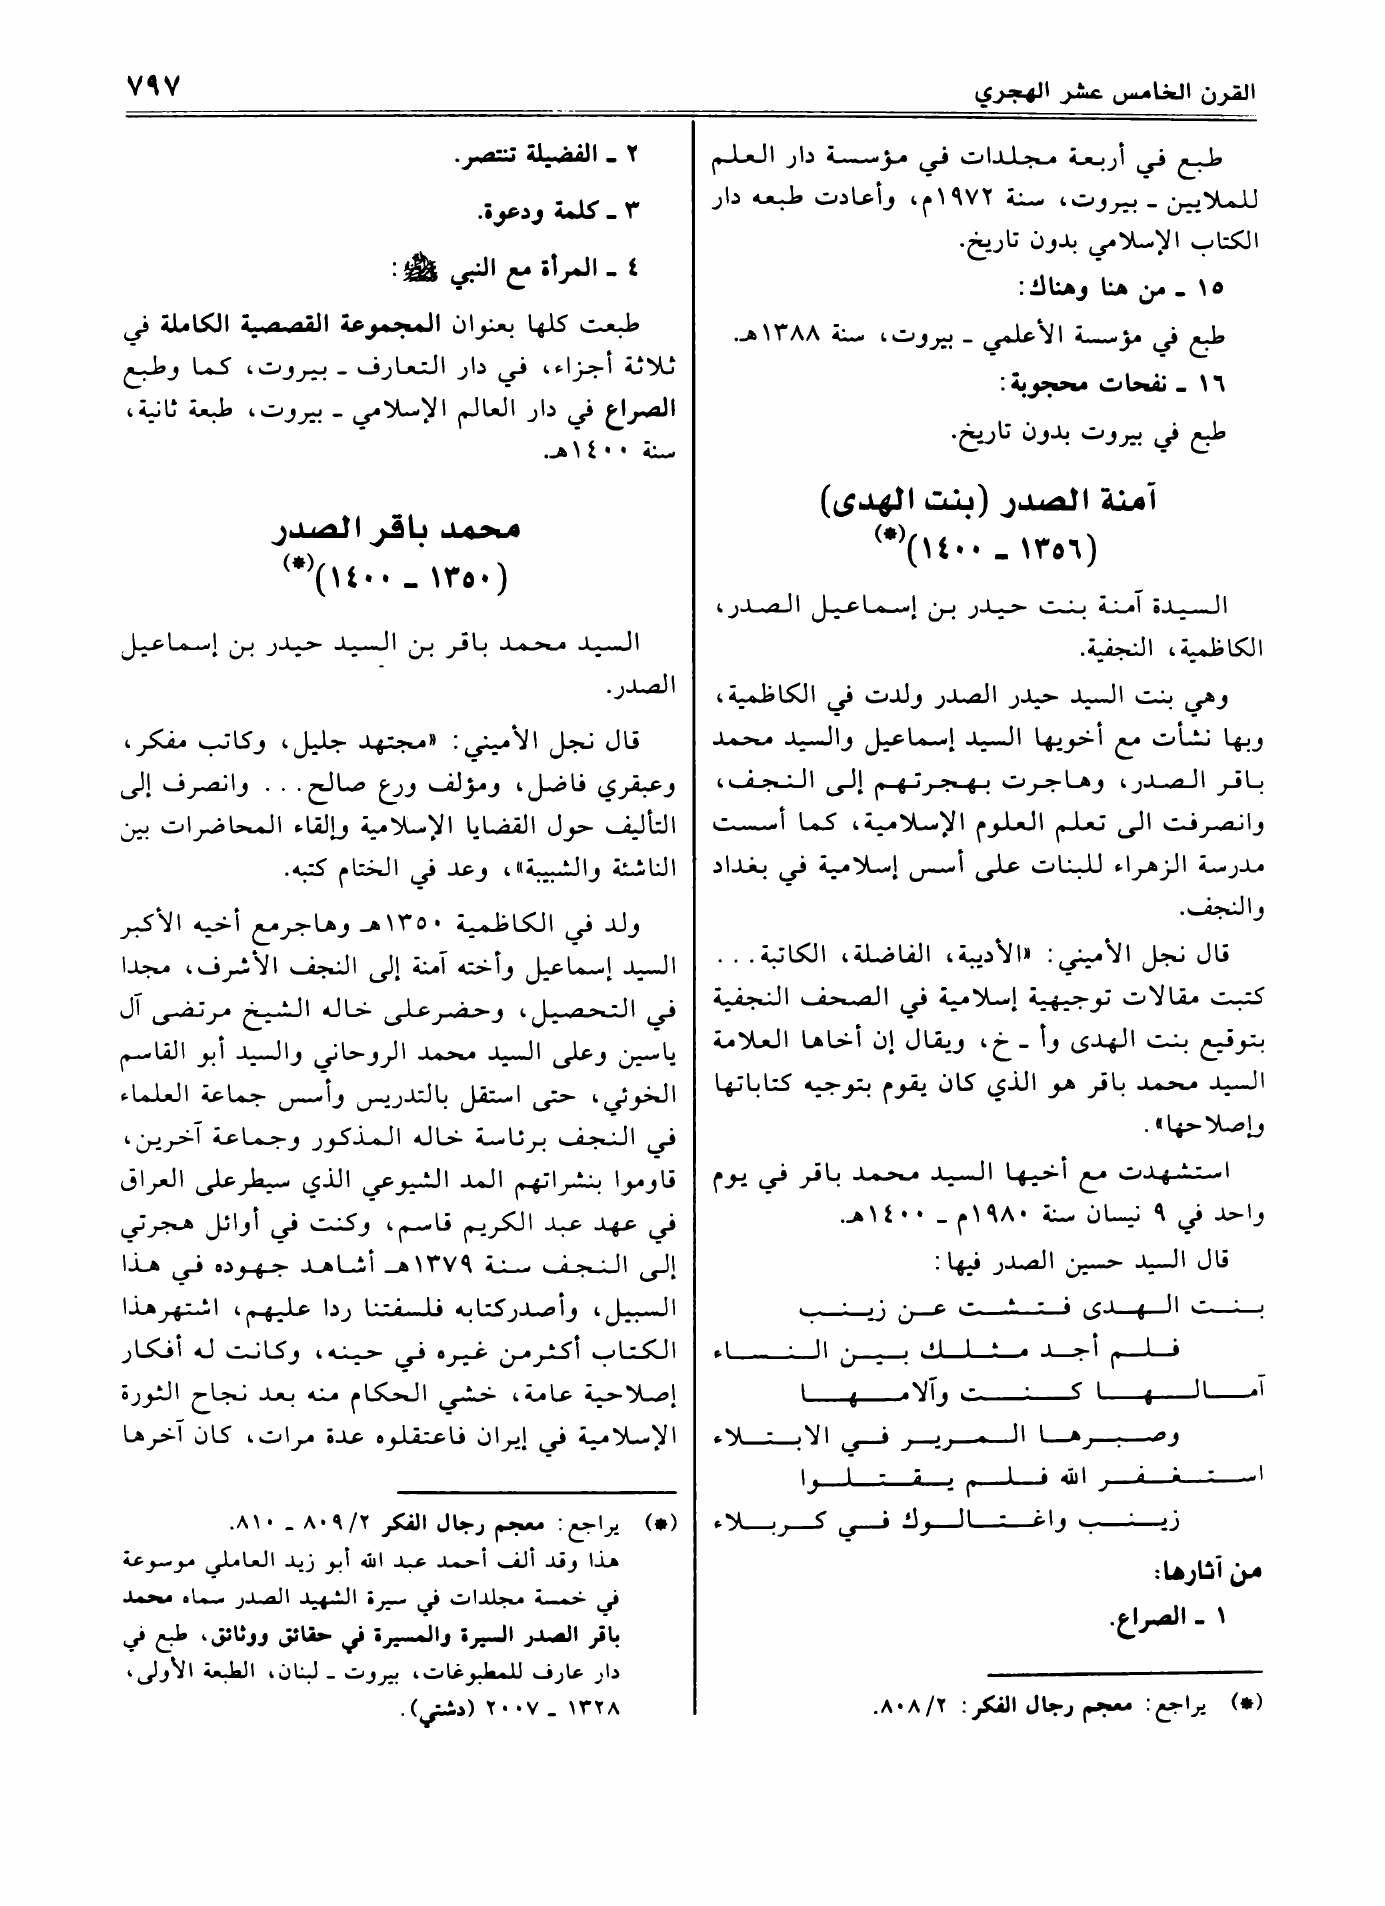 القرن الخامس عشر الهجري
٧٩٧
طبع في أربعة مجلدات في مؤسسة دار العلم
للملايين ـ بيروت، سنة ١٩٧٢م، وأعادت طبعه دار
الكتاب الإسلامي بدون تاريخ.
١٥ ـ من هنا وهناك:
طبع في مؤسسة الأعلمي ـ بيروت، سنة ١٣٨٨هـ.
١٦ ـ نفحات محجوبة:
طبع في بيروت بدون تاريخ.
آمنة الصدر (بنت الهدى)
(١٣٥٦ ـ ١٤٠٠)(*)
السيدة آمنة بنت حيدر بن إسماعيل الصدر،
الكاظمية، النجفية.
وهي بنت السيد حيدر الصدر ولدت في الكاظمية،
وبها نشأت مع أخويها السيد إسماعيل والسيد محمد
باقر الصدر، وهاجرت بهجرتهم إلى النجف،
وانصرفت الى تعلم العلوم الإسلامية، كما أسست
مدرسة الزهراء للبنات على أسس إسلامية في بغداد
والنجف.
قال نجل الأميني: «الأديبة، الفاضلة، الكاتبة...
كتبت مقالات توجيهية إسلامية في الصحف النجفية
بتوقيع بنت الهدى وأ ـ خ، ويقال إن أخاها العلامة
السيد محمد باقر هو الذي كان يقوم بتوجيه كتاباتها
وإصلاحها».
استشهدت مع أخيها السيد محمد باقر في يوم
واحد في ٩ نيسان سنة ١٩٨٠م ـ ١٤٠٠هـ.
قال السيد حسين الصدر فيها:
بنت الهدى فتشت عن زينب
فلم أجد مثلك بين النساء
آمالها كنت وآلامها
وصبرها المرير في الابتلاء
استغفر الله فلم يقتلوا
زينب واغتالوك في كربلاء
من آثارها:
١ ـ الصراع.
(*) يراجع: معجم رجال الفكر: ٢/ ٨٠٨.
٢ ـ الفضيلة تنتصر.
٣ ـ كلمة ودعوة.
٤ ـ المرأة مع النبي ﷺ:
طبعت كلها بعنوان المجموعة القصصية الكاملة في
ثلاثة أجزاء، في دار التعارف ـ بيروت، كما وطبع
الصراع في دار العالم الإسلامي ـ بيروت، طبعة ثانية،
سنة ١٤٠٠هـ.
محمد باقر الصدر
(١٣٥٠ ـ ١٤٠٠)(*)
السيد محمد باقر بن السيد حيدر بن إسماعيل
الصدر.
قال نجل الأميني: «مجتهد جليل، وكاتب مفكر،
وعبقري فاضل، ومؤلف ورع صالح... وانصرف إلى
التأليف حول القضايا الإسلامية وإلقاء المحاضرات بين
الناشئة والشبيبة»، وعد في الختام كتبه.
ولد في الكاظمية ١٣٥٠هـ وهاجرمع أخيه الأكبر
السيد إسماعيل وأخته آمنة إلى النجف الأشرف، مجدا
في التحصيل، وحضرعلى خاله الشيخ مرتضى آل
ياسين وعلى السيد محمد الروحاني والسيد أبو القاسم
الخوئي، حتى استقل بالتدريس وأسس جماعة العلماء
في النجف برئاسة خاله المذكور وجماعة آخرين،
قاوموا بنشراتهم المد الشيوعي الذي سيطرعلى العراق
في عهد عبد الكريم قاسم، وكنت في أوائل هجرتي
إلى النجف سنة ١٣٧٩هـ أشاهد جهوده في هذا
السبيل، وأصدركتابه فلسفتنا ردا عليهم، اشتهرهذا
الكتاب أكثرمن غيره في حينه، وكانت له أفكار
إصلاحية عامة، خشي الحكام منه بعد نجاح الثورة
الإسلامية في إيران فاعتقلوه عدة مرات، كان آخرها
(*) يراجع: معجم رجال الفكر ٢/ ٨٠٩ ـ ٨١٠.
هذا وقد ألف أحمد عبد الله أبو زيد العاملي موسوعة
في خمسة مجلدات في سيرة الشهيد الصدر سماه محمد
باقر الصدر السيرة والمسيرة في حقائق ووثائق، طبع في
دار عارف للمطبوعات، بيروت ـ لبنان، الطبعة الأولى،
١٣٢٨ ـ ٢٠٠٧ (دشتي).